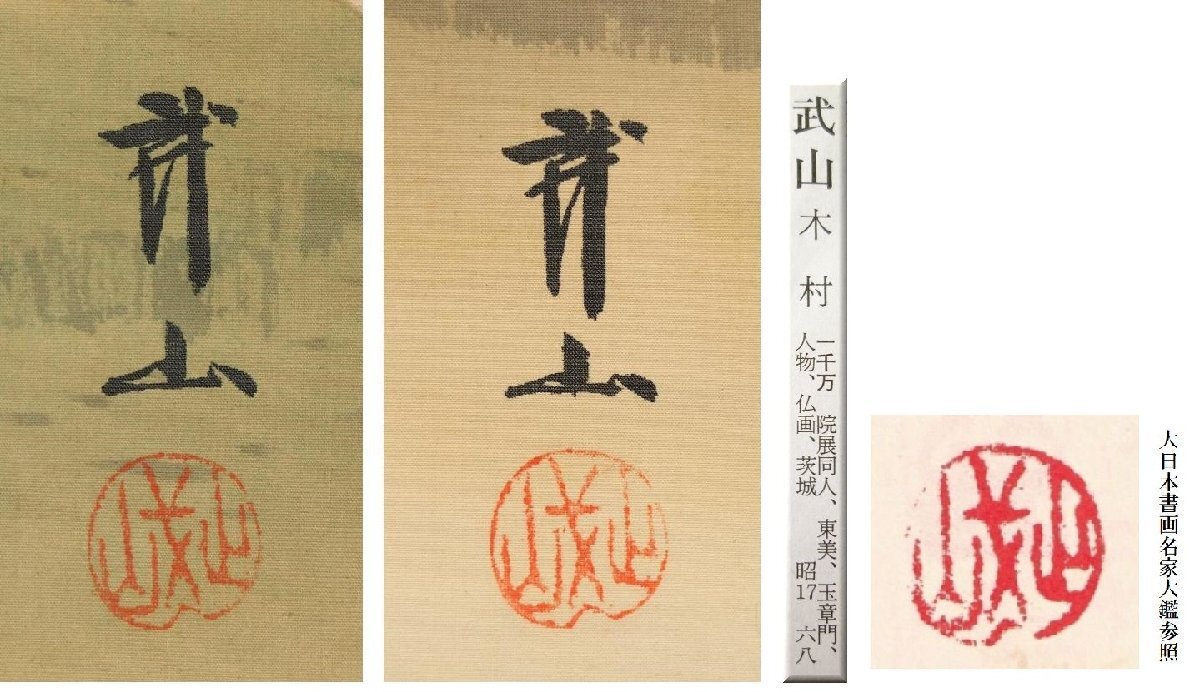 武山
武山
武山 木村
一千万 院展同人、東美、玉章門、
人物、仏画、茨城 昭17 六八
大日本書画名家大鑑参照